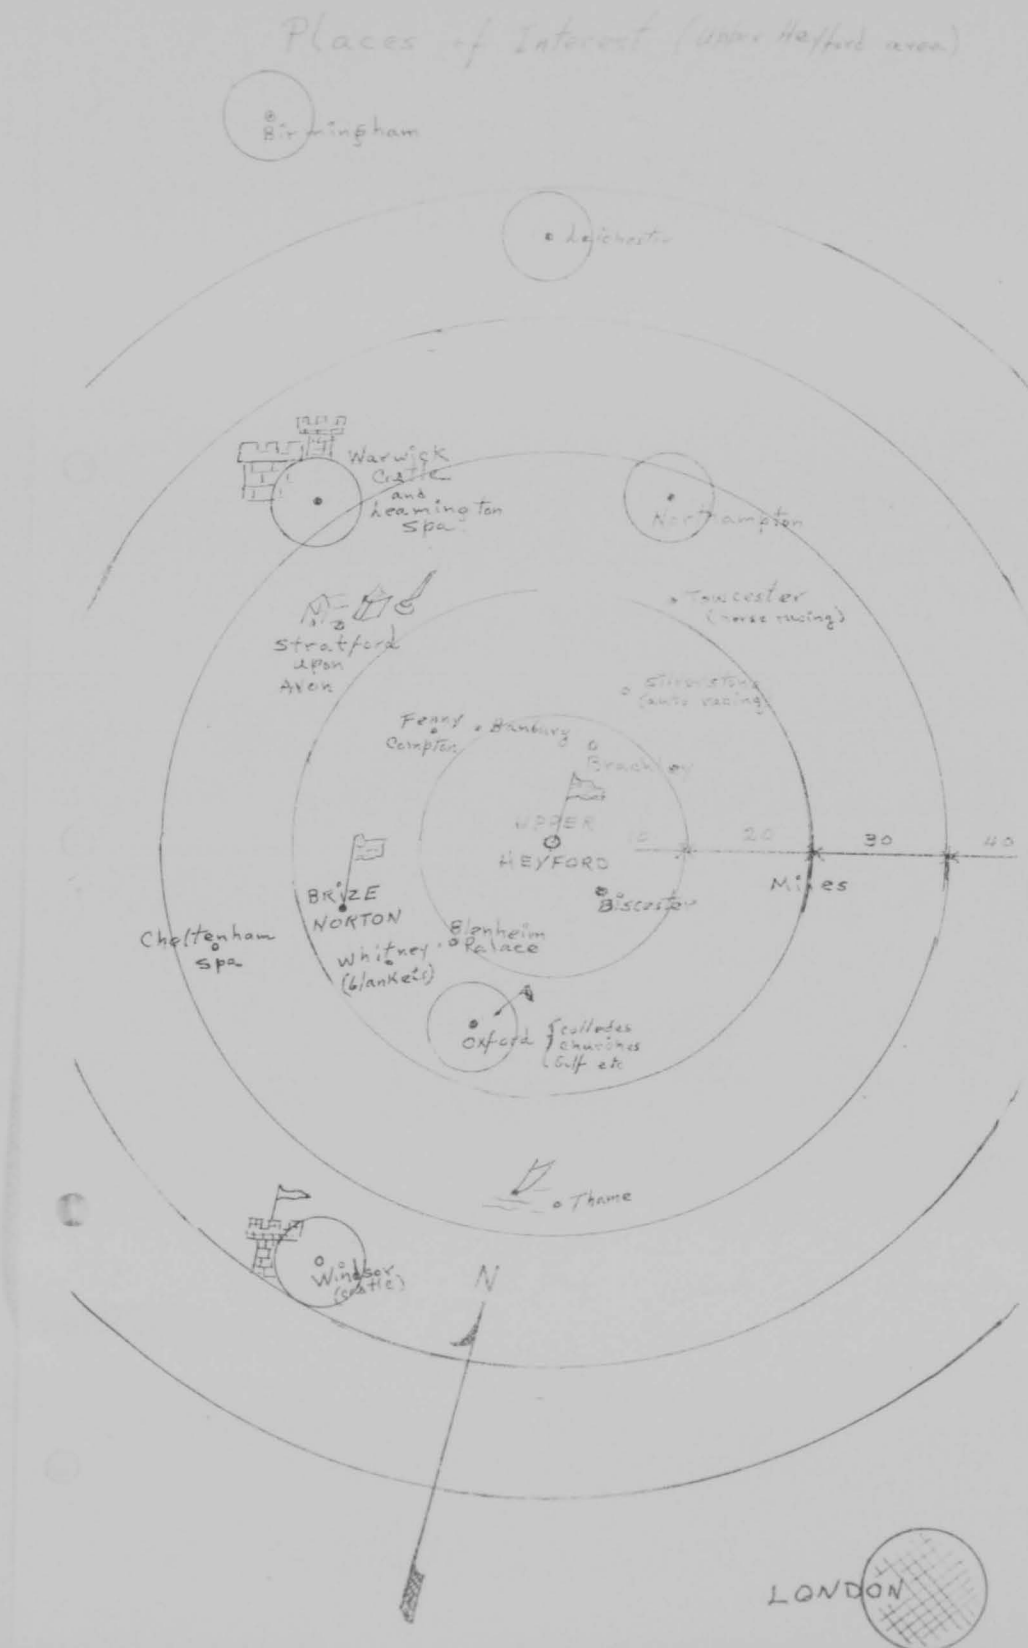 Places of Interest (Upper Heyford area)
Birmingham
Leichester
Warwick
Castle
and
Leamington
Spa
Northampton
Towcester
(horse racing)
Stratford
upon
Avon
Silverstone
(auto racing)
Fenny
Compton
Banbury
Brackley
UPPER
HEYFORD
10 20 30 40
Miles
BRIZE
NORTON
Biscester
Cheltenham
Spa
Blenheim
Palace
Whitney
(blankets)
Oxford
colledes
churches
Golf etc
Thame
Windsor
(castle)
N
LONDON